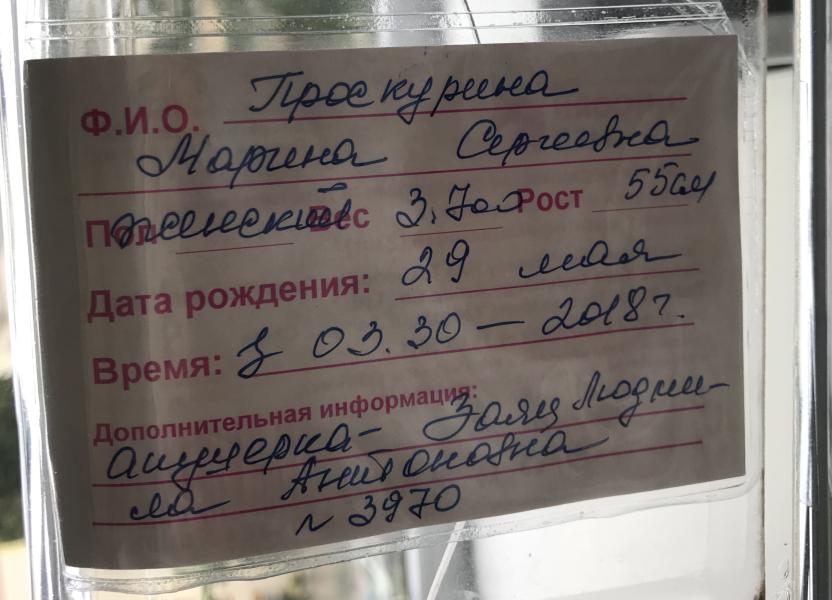 Ф.И.О. Проскурина
Марина Сергеевна
Пол женский Вес 3.700 Рост 55см
Дата рождения: 29 мая
Время: В 03.30 – 2018г.
Дополнительная информация:
акушерка – Заяц Людми-
ла Антоновна
№ 3970